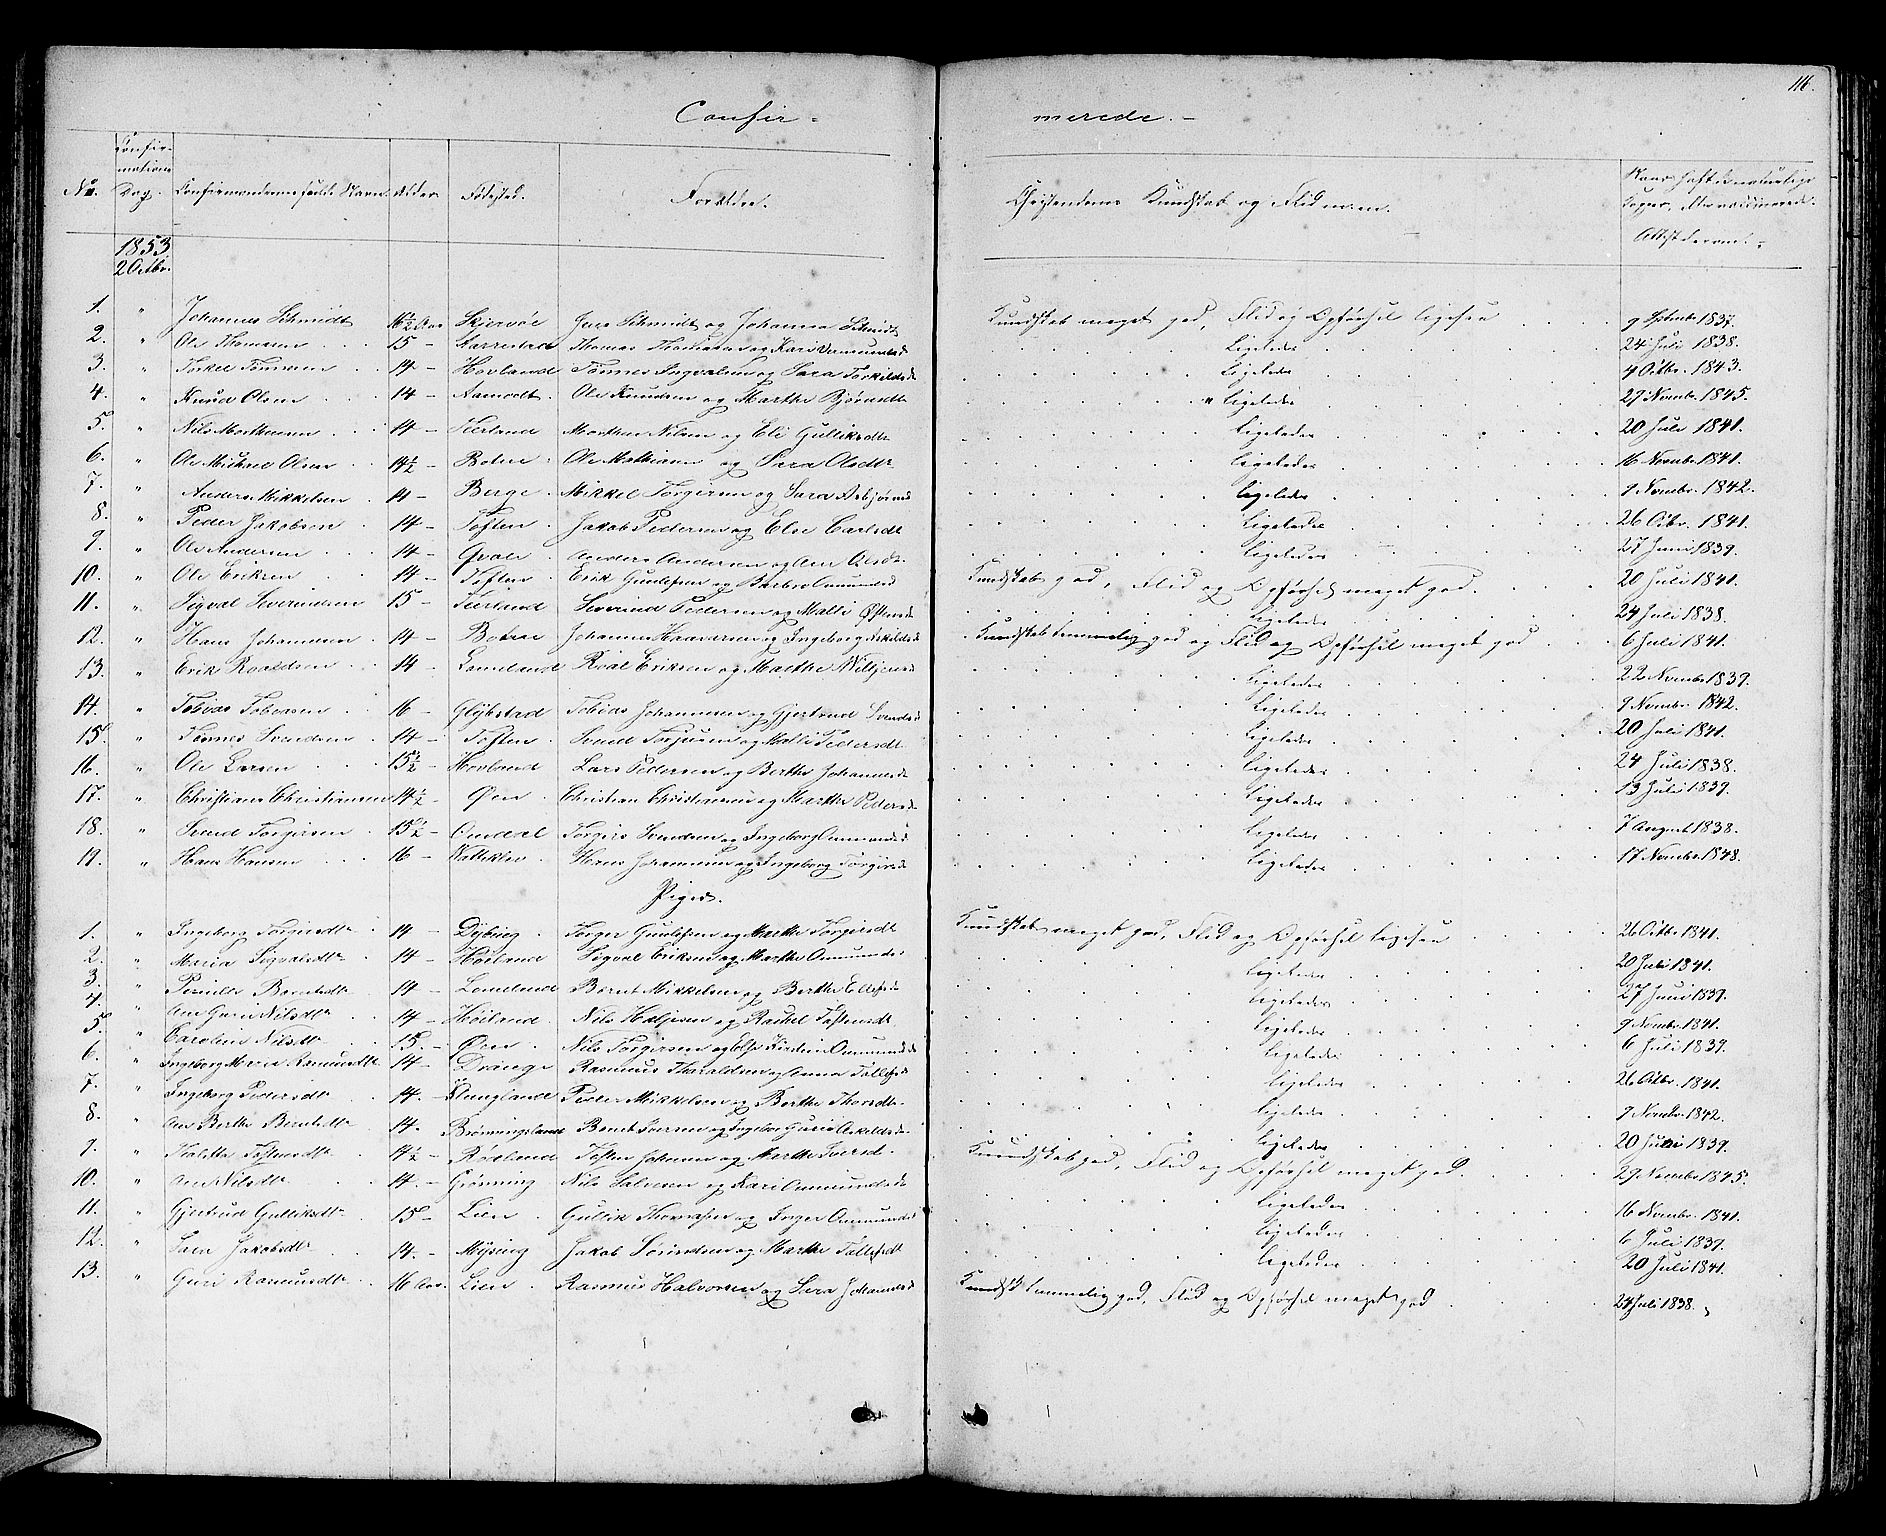 116.
Confir = merede. -
No. Confir-mations Dag. Confirmandernes fulde Navn. Alder. Fødested. Forældre. Christendoms Kundskab og Flid m. m. Naar haft de naturlige Kopper, eller vaccinerede. Attest derom. -
1853
2 Octbr.
1. " Johannes Schmidt 16½ Aar Skjervøe Jens Schmidt og Johanna Schmidt Kundskab meget god, Flid og Opførsel ligesaa 9 Septembr 1837.
2. " Ole Thomesen 15 - Thomas Thomassen og Kari Ligeledes 24 Juli 1838.
3. " Torkel Tønnesen 14 - Hovland Tønnes Ingvalsen og Sara Torkilsd Ligeledes 4 Octbr. 1843.
4. " Knud Olsen 14 - Aamodt Ole Knudsen og Marthe Bjørnsdt " Ligeledes 29 Novembr 1845.
5. " Nils Morthensen 14 - Tierland Morthen Nilsen og Eli Gulliksdt Ligeledes 20 Juli 1841.
6. " Ole Mickael Olsen 14½ - Botne Ole Mathiasen og Sara Olsdtr Ligeledes 16 Novembr 1841.
7. " Anders Mikkelsen 14 - Berge Mikkel Torgersen og Sara Asbjørnsd Ligeledes 9 Novembr. 1842.
8. " Peder Jakobsen 14 - Toften Jakob Pedersen og Else Carlsdt Ligeledes 26 Octbr. 1841.
9. " Ole Andersen 14 - Anders Andersen og Ane Olsdt Ligeledes 27 Juni 1839.
10. " Ole Eriksen 14 - Toften Erik Gundlefsen og Barbro Omundsd Kundskab god, Flid og Opførsel meget god. 20 Juli 1841.
11. " Sigval Severindsen 15 - Tierland Severind Pedersen og Malli Østensd Ligeledes 24 Juli 1838.
12. " Hans Johannesen 14 - Botne Johannes Haaversen og Ingeborg Askildsd Kundskab temmelig god og Flid og Opførsel meget god 6 Juli 1841.
13. " Erik Roaldsen 14 - Lomeland Roal Eriksen og Marthe Ligeledes 22 Novembr 1839.
14. " Tobias Tobiasen 16 - Glybstad Tobias Johannesen og Gjertrud Svendsd Ligeledes 9 Novembr. 1842.
15. " Tønnes Svendsen 14 - Toften Svend Torjusen og Malli Pedersdt Ligeledes 20 Juli 1841.
16. " Ole Larsen 15½ - Hovland Lars Pedersen og Berthe Johannesd Ligeledes 24 Juli 1838.
17. " Christian Christiansen 14½ - Øen Christian Christensen og Marthe Pedersd Ligeledes 13 Juli 1839.
18. " Svend Torgersen 15½ - Omdal Torgers Svendsen og Ingeborg Ommundsd Ligeledes 7 August 1838.
19. " Hans Hansen 16 - Hans Johannesen og Ingeborg Torgersd Ligeledes 17 Novembr. 1848.
Piger.
1. " Ingeborg Torgersdtr 14 - Dybing Torger Gundlefsen og Marthe Torgersdt Kundskab meget god, Flid og Opførsel ligesaa 26 Octbr 1841.
2. " Maria Sigvalsdtr 14 - Høiland Sigval Eriksen og Marthe Ommundsd Ligeledes 20 Juli 1841.
3. " Pernille Berntsdtr 14 - Lomeland Bernt Mikkelsen og Berthe Ellefsd Ligeledes 27 Juni 1839.
4. " Ane Guri Nilsdtr 14 - Høiland Nils Heljesen og Rachel Tostensdt Ligeledes 9 Novembr 1841.
5. " Caroline Nilsdtr 15 - Øen Nils Torgersen og Else Kirstine Ommundsd Ligeledes 6 Juli 1839.
6. " Ingeborg Marie Rasmusdtr 14 - Drange Rasmus Tharaldsen og Anna Tollefsd Ligeledes 26 Octbr. 1841.
7. " Ingeborg Pedersdtr 14. - Peder Mikkelsen og Berthe Thorsdtr Ligeledes 9 Novembr 1842.
8. " Ane Berthe Berntsdtr 14. - Brønningsland Bernt Iversen og Ingebor Gurie Askildsd Ligeledes 20 Juni 1839.
9. " Tostensdtr 14½ - Rødland Tosten Johannesen og Marthe Iversd Kundskab god, Flid og Opførsel meget god. 29 Novembr 1845.
10. " Ane Nilsdtr 14. - Grønning Nils Salvesen og Kari Ommundsd Ligeledes 16 Novembr. 1841.
11. " Gjertrud Gulliksdtr 15 - Lien Gullik Thomasen og Inger Ommundsd Ligeledes 6 Juli 1839.
12. " Sara Jakobsdtr 14. - Mysing Jakob Sørensen og Marthe Tollefsdt Ligeledes 20 Juli 1841.
13. " Guri Rasmusdtr 16 Aar. Lien Rasmus Halvorsen og Sara Johannesd Kundsk temmelig god, Flid og Opførsel meget god 24 Juli 1838.